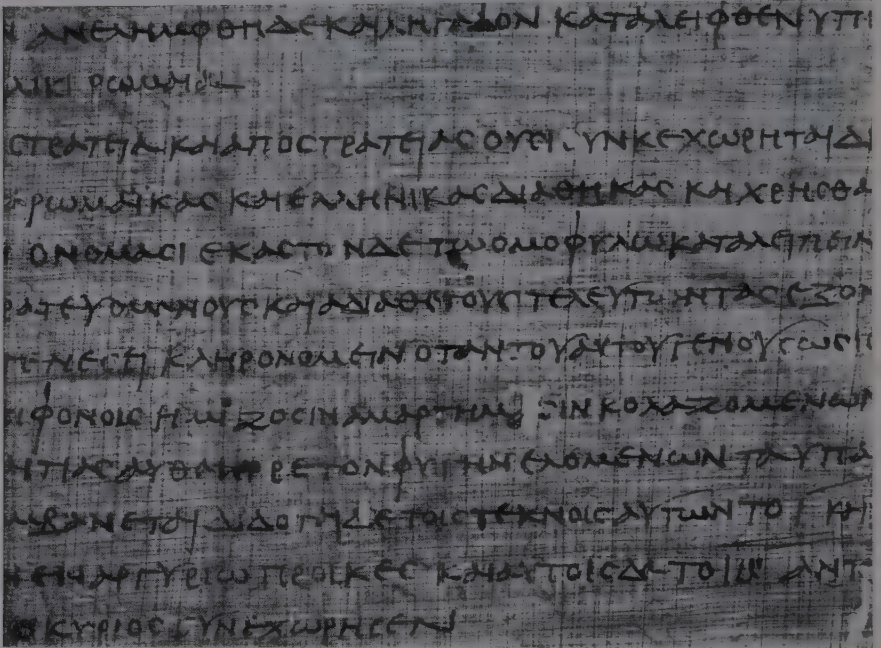 ΑΝΕΛΗΜΦΘΗ ΔΕ ΚΑΙ ΛΗΓΑΔΟΝ ΚΑΤΑΛΕΙΦΘΕΝ ΥΠ
ΡΩΜΑΙΑ
ΣΤΡΑΤΕΙΑ ΚΑΙ ΑΠΟ ΣΤΡΑΤΕΙΑΣ ΟΥΣΙ ΣΥΝΚΕΧΩΡΗΤΑΙ ΔΙ
ΡΩΜΑΙΚΑΣ ΚΑΙ ΕΛΛΗΝΙΚΑΣ ΔΙΑΘΗΚΑΣ ΚΑΙ ΧΡΗΣΘΑ
ΟΝΟΜΑΣΙ ΕΚΑΣΤΟΝ ΔΕ ΤΩ ΟΜΟΦΥΛΩ ΚΑΤΑΛΕΙΠΕΙΝ
ΡΑΤΕΥΟΜΕΝΟΥΣ ΚΑΙ ΑΔΙΑΘΕΤΟΥΣ ΤΕΛΕΥΤΩΝΤΑΣ ΕΞΟΝ
ΓΕΝΕΣΕΙ ΚΛΗΡΟΝΟΜΕΙΝ ΟΤΑΝ ΤΟΥ ΑΥΤΟΥ ΓΕΝΟΥΣ ΩΣΙ
ΦΟΝΟΙΣ Η ΜΙΖΟΣΙΝ ΑΜΑΡΤΗΜΑΣΙΝ ΚΟΛΑΖΟΜΕΝΩΝ
ΗΤΙΑΣ ΑΥΘΑΙΡΕΤΟΝ ΦΥΓΗΝ ΕΛΟΜΕΝΩΝ ΤΑ ΥΠΑ
ΛΑΜΒΑΝΕΤΑΙ ΔΙΔΟΤΑΙ ΔΕ ΤΟΙΣ ΤΕΚΝΟΙΣ ΑΥΤΩΝ ΤΟ Ι ΚΑΙ
ΕΝ ΑΡΓΥΡΙΩ ΠΡΟΙΚΕΣ ΚΑΙ ΑΥΤΟΙΣ ΔΕ ΤΟ ΙΒ ΑΝΤ
Ο ΚΥΡΙΟΣ ΣΥΝΕΧΩΡΗΣΕΝ